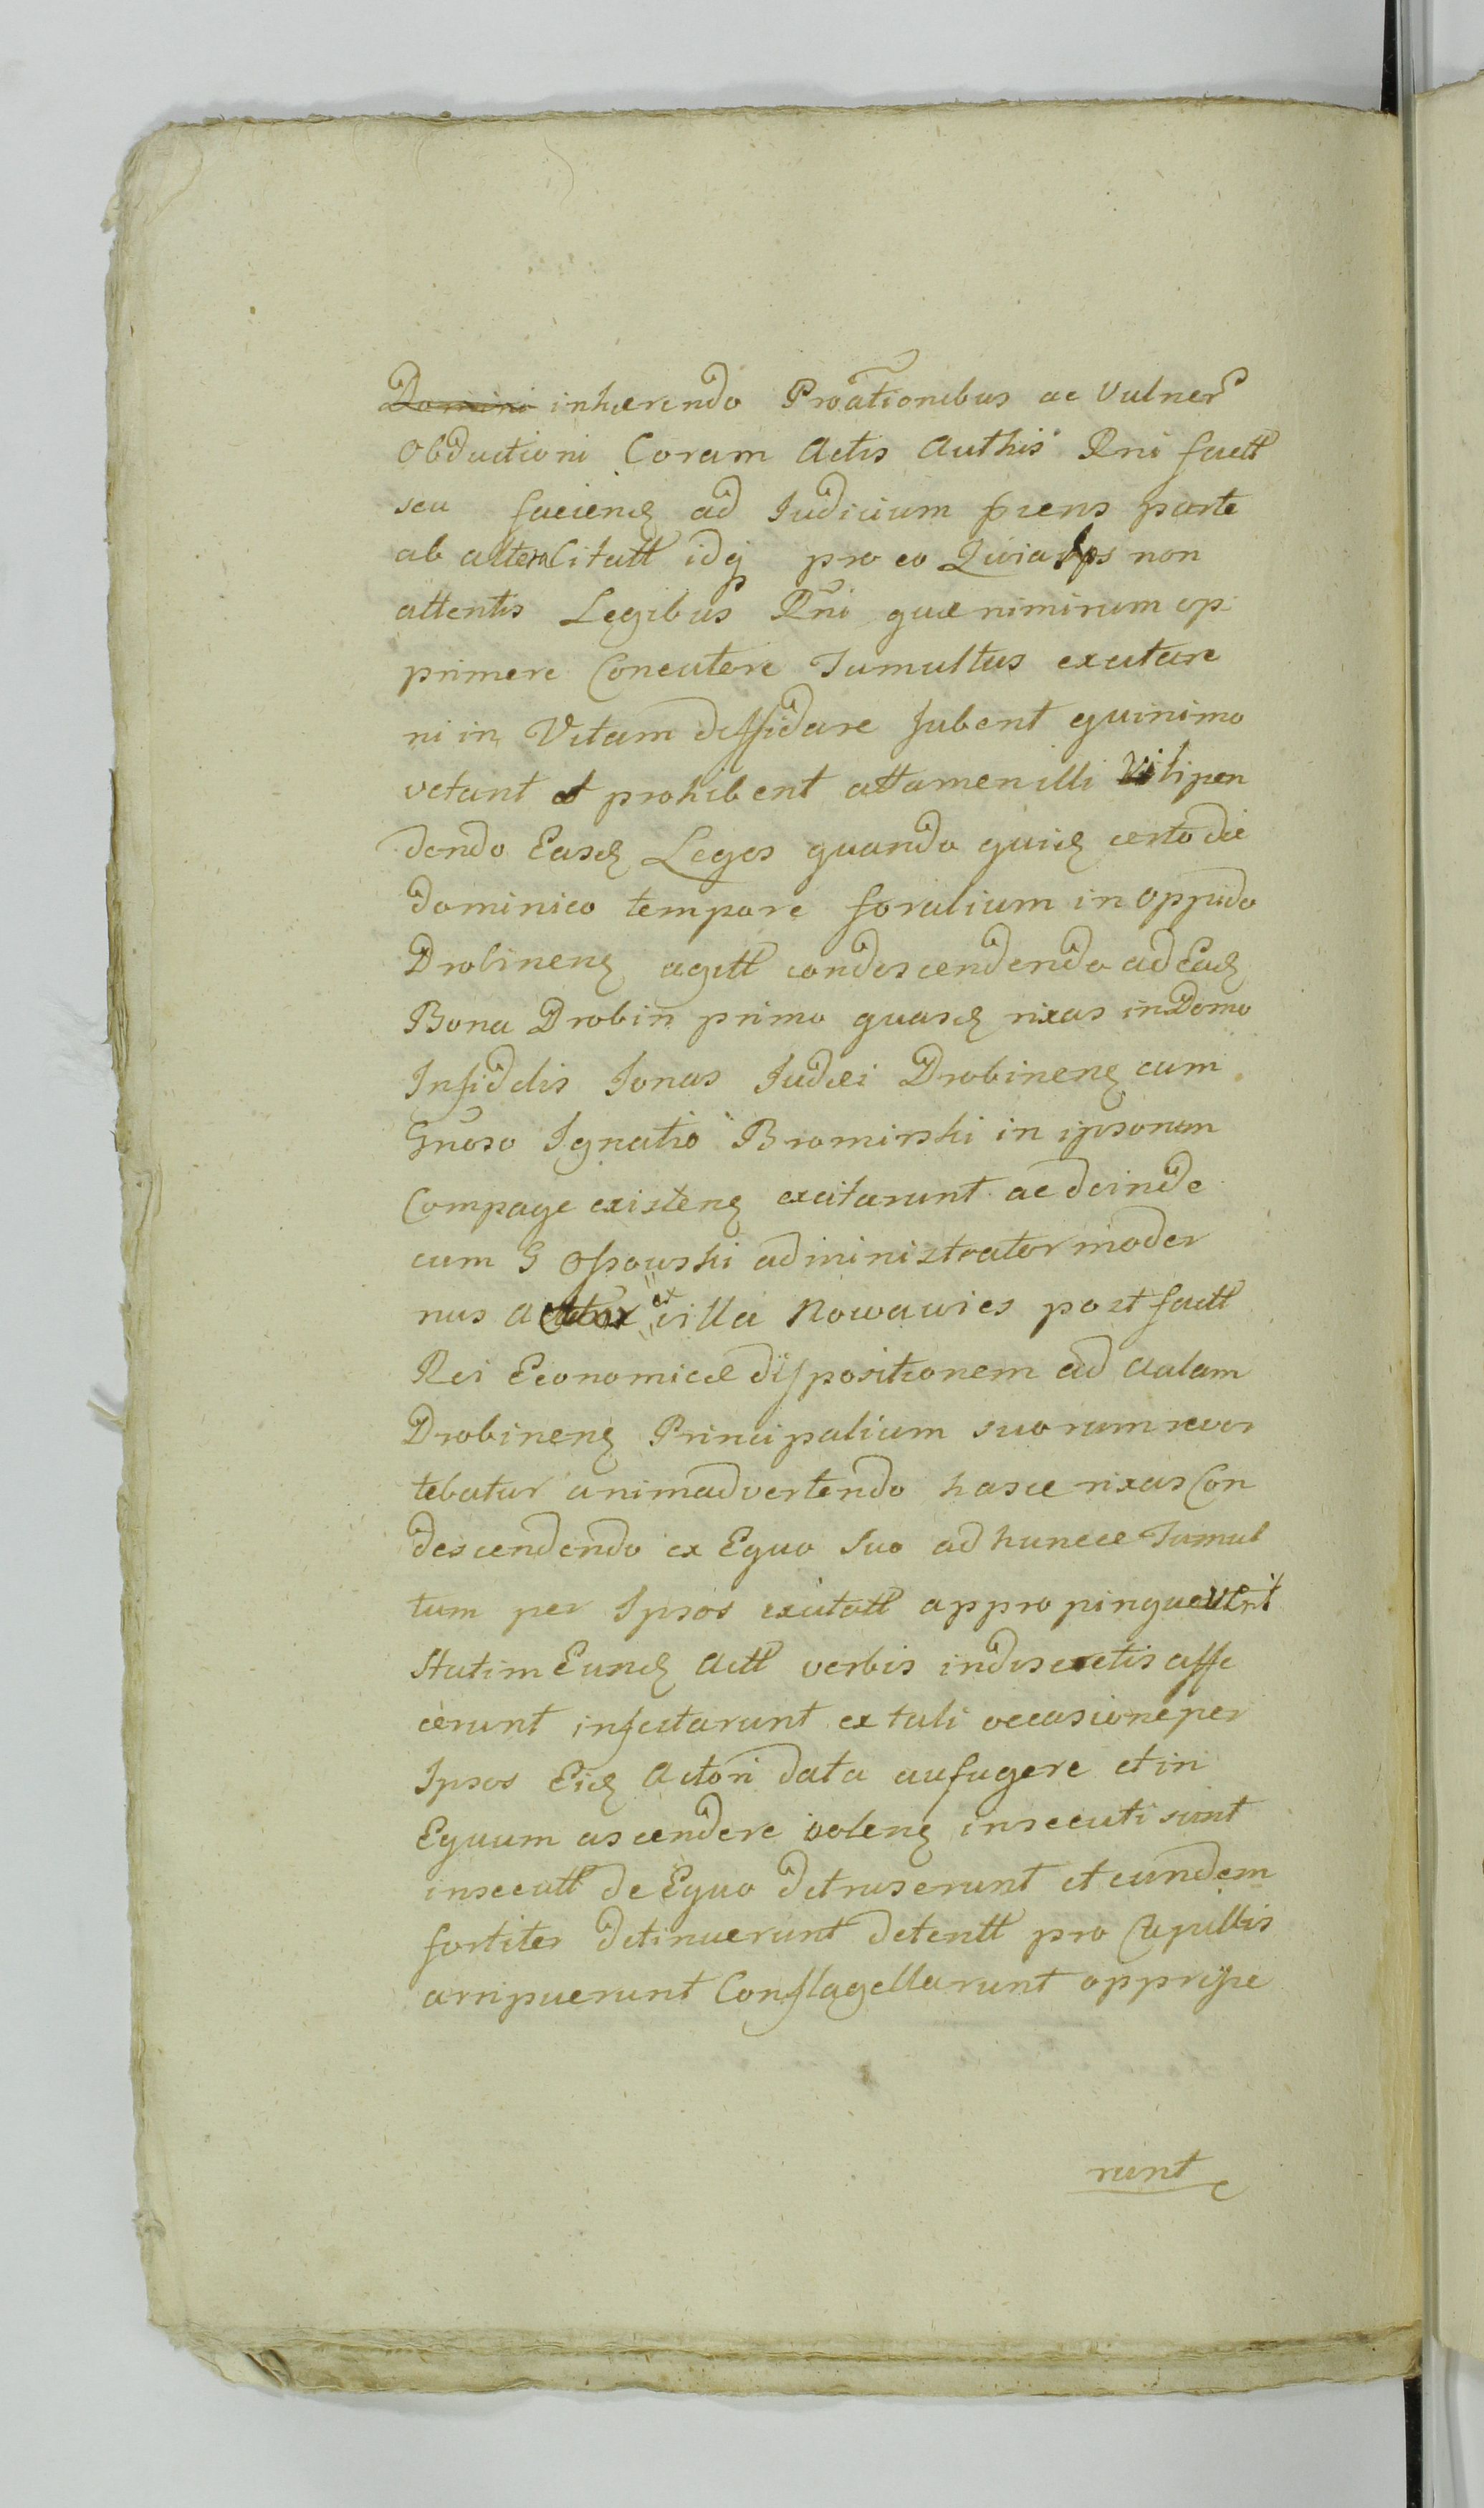 Domini inhærendo Proãtionibus ac Vulner
Obductioni Coram Actis Authis Rni factt
seu faciend ad Judicium prens parte
ab altera Citatt idq pro eo Quia Ips non
attentis Legibus Rñi quæ nimirum op
primere Concutere Tumultus excitare
ni in Vitam diffidare Jubent quinimo
vetant et prohibent attamen illi Vilipen
dendo Easd Leges quando quid certo die
dominico tempore foralium in oppido
Drobinens agitt condescendendo ad Ead
Bona Drobin primo quasd rixas in Domo
Infidelis Jonas Judæi Drobinens cum
Gnõso Ignatio Bromirski in ipsorum
Compage existens excitarunt ac deinde
cum G Ossowski administrator moder
nus Actor ex villa Nowawies post factt
Rei Economicæ dispositionem ad Aulam
Drobinens Principalium suorum rever
tebatur animadvertendo hasce rixas Con
descendendo ex Equo Suo ad huncce Tumul
tum per Ipsos excitatt appropinquaverit
Statim Eund Actt verbis indiscretis affe
cerunt infectarunt ex tali occasione per
Ipsos Eid Actori data aufugere et in
Equum ascendere volens insecuti sunt
insecutt de Equo detruserunt et eundem
fortiter detinuerunt detentt pro Capillis
arripuerunt Conflagellarunt oppresse
runt